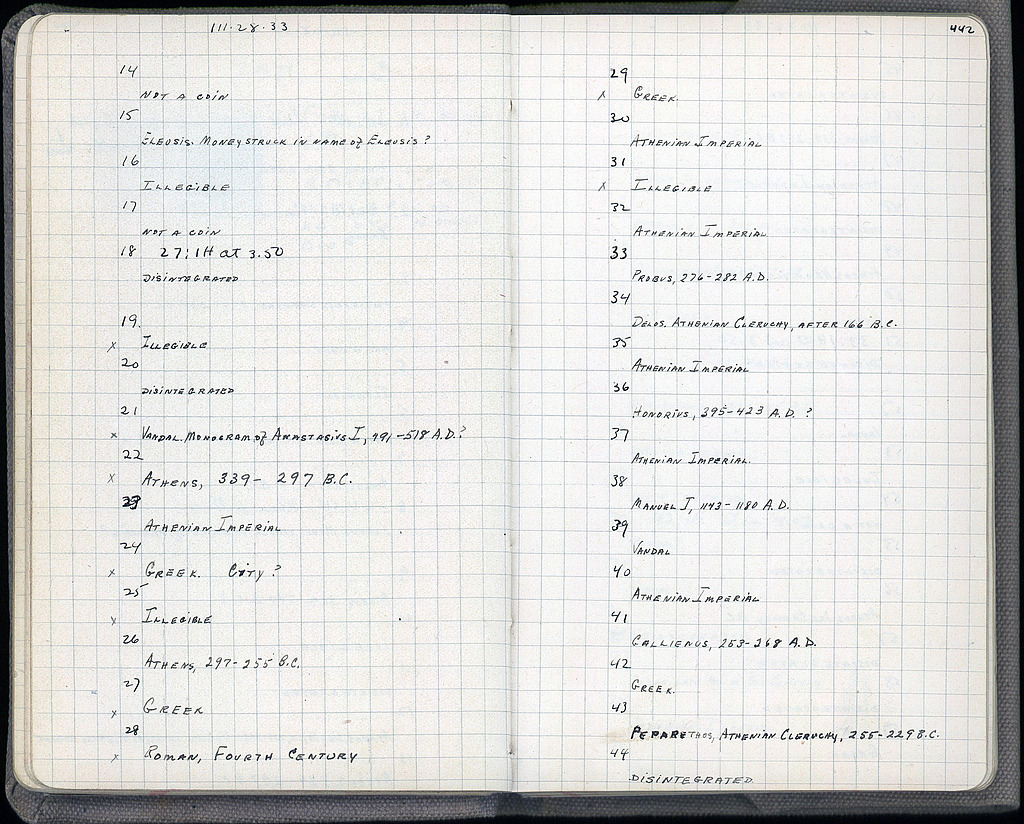 111·28·33
14
NOT A COIN
15
ELEUSIS. MONEY STRUCK IN NAME OF ELEUSIS?
16
ILLEGIBLE
17
NOT A COIN
18 27:1H at 3.50
DISINTEGRATED
19.
x ILLEGIBLE
20
DISINTEGRATED
21
x VANDAL. MONOGRAM OF ANASTASIUS I, 491-518 A.D.?
22
x ATHENS, 339- 297 B.C.
23
ATHENIAN IMPERIAL
24
x GREEK. CITY?
25
x ILLEGIBLE
26
ATHENS, 297-255 B.C.
27
x GREEK
28
x ROMAN, FOURTH CENTURY
442
29
x GREEK.
30
ATHENIAN IMPERIAL
31
x ILLEGIBLE
32
ATHENIAN IMPERIAL
33
PROBUS, 276-282 A.D.
34
DELOS. ATHENIAN CLERUCHY, AFTER 166 B.C.
35
ATHENIAN IMPERIAL
36
HONORIUS, 395-423 A.D. ?
37
ATHENIAN IMPERIAL.
38
MANUEL I, 1143-1180 A.D.
39
VANDAL
40
ATHENIAN IMPERIAL
41
GALLIENUS, 253-268 A.D.
42
GREEK.
43
PEPARETHOS, ATHENIAN CLERUCHY, 255-229 B.C.
44
DISINTEGRATED